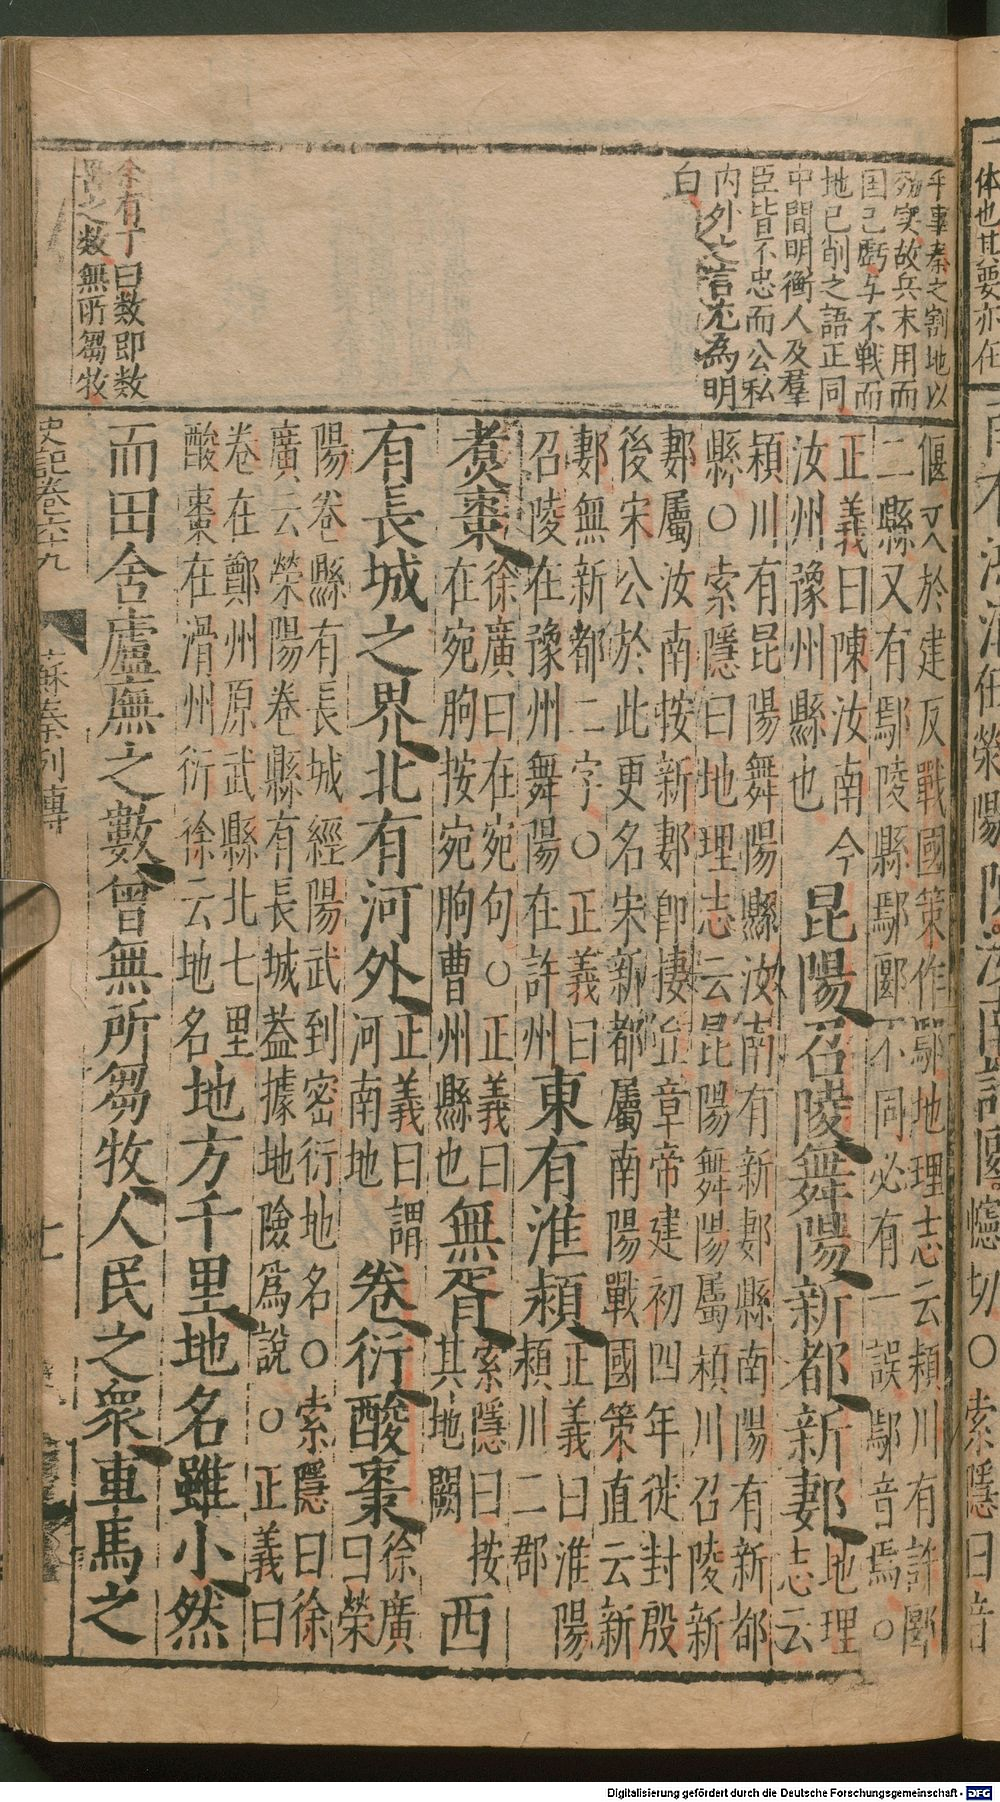 乎事秦之割地以
効実故兵未用而
国已虧与不戦而
地已削之語正同
中間明衡人及羣
臣皆不忠而公私
内外之言尤為明
白
余有丁曰数即数
罟之数無所芻牧
偃又於建反戰國策作鄢地理志云潁川有許鄢
二縣又有鄢陵縣鄢郾不同必有一誤鄢音焉○
正義曰陳汝南今
汝州豫州縣也
昆陽召陵舞陽新都新郪
地理
志云
潁川有昆陽舞陽縣汝南有新郪縣南陽有新都
縣○索隱曰地理志云昆陽舞陽屬潁川召陵新
郪屬汝南按新郪即㥛丘章帝建初四年徙封殷
後宋公於此更名宋新都屬南陽戰國策直云新
郪無新都二字○正義曰
召陵在豫州舞陽在許州
東有淮潁
正義曰淮陽
潁川二郡
煑棗
徐廣曰在宛句○正義曰
在宛朐按宛朐曹州縣也
無胥
索隱曰按
其地闕
西
有長城之界北有河外
正義曰謂
河南地
卷衍酸棗
徐廣
曰榮
陽卷縣有長城經陽武到密衍地名○索隱曰徐
廣云榮陽卷縣有長城葢據地險爲說○正義曰
卷在鄭州原武縣北七里
酸棗在滑州衍徐云地名
地方千里地名雖小然
而田舍廬廡之數曾無所芻牧人民之衆車馬之
史記卷六十九
蘇秦列傳
七
Digitalisierung gefördert durch die Deutsche Forschungsgemeinschaft - DFG